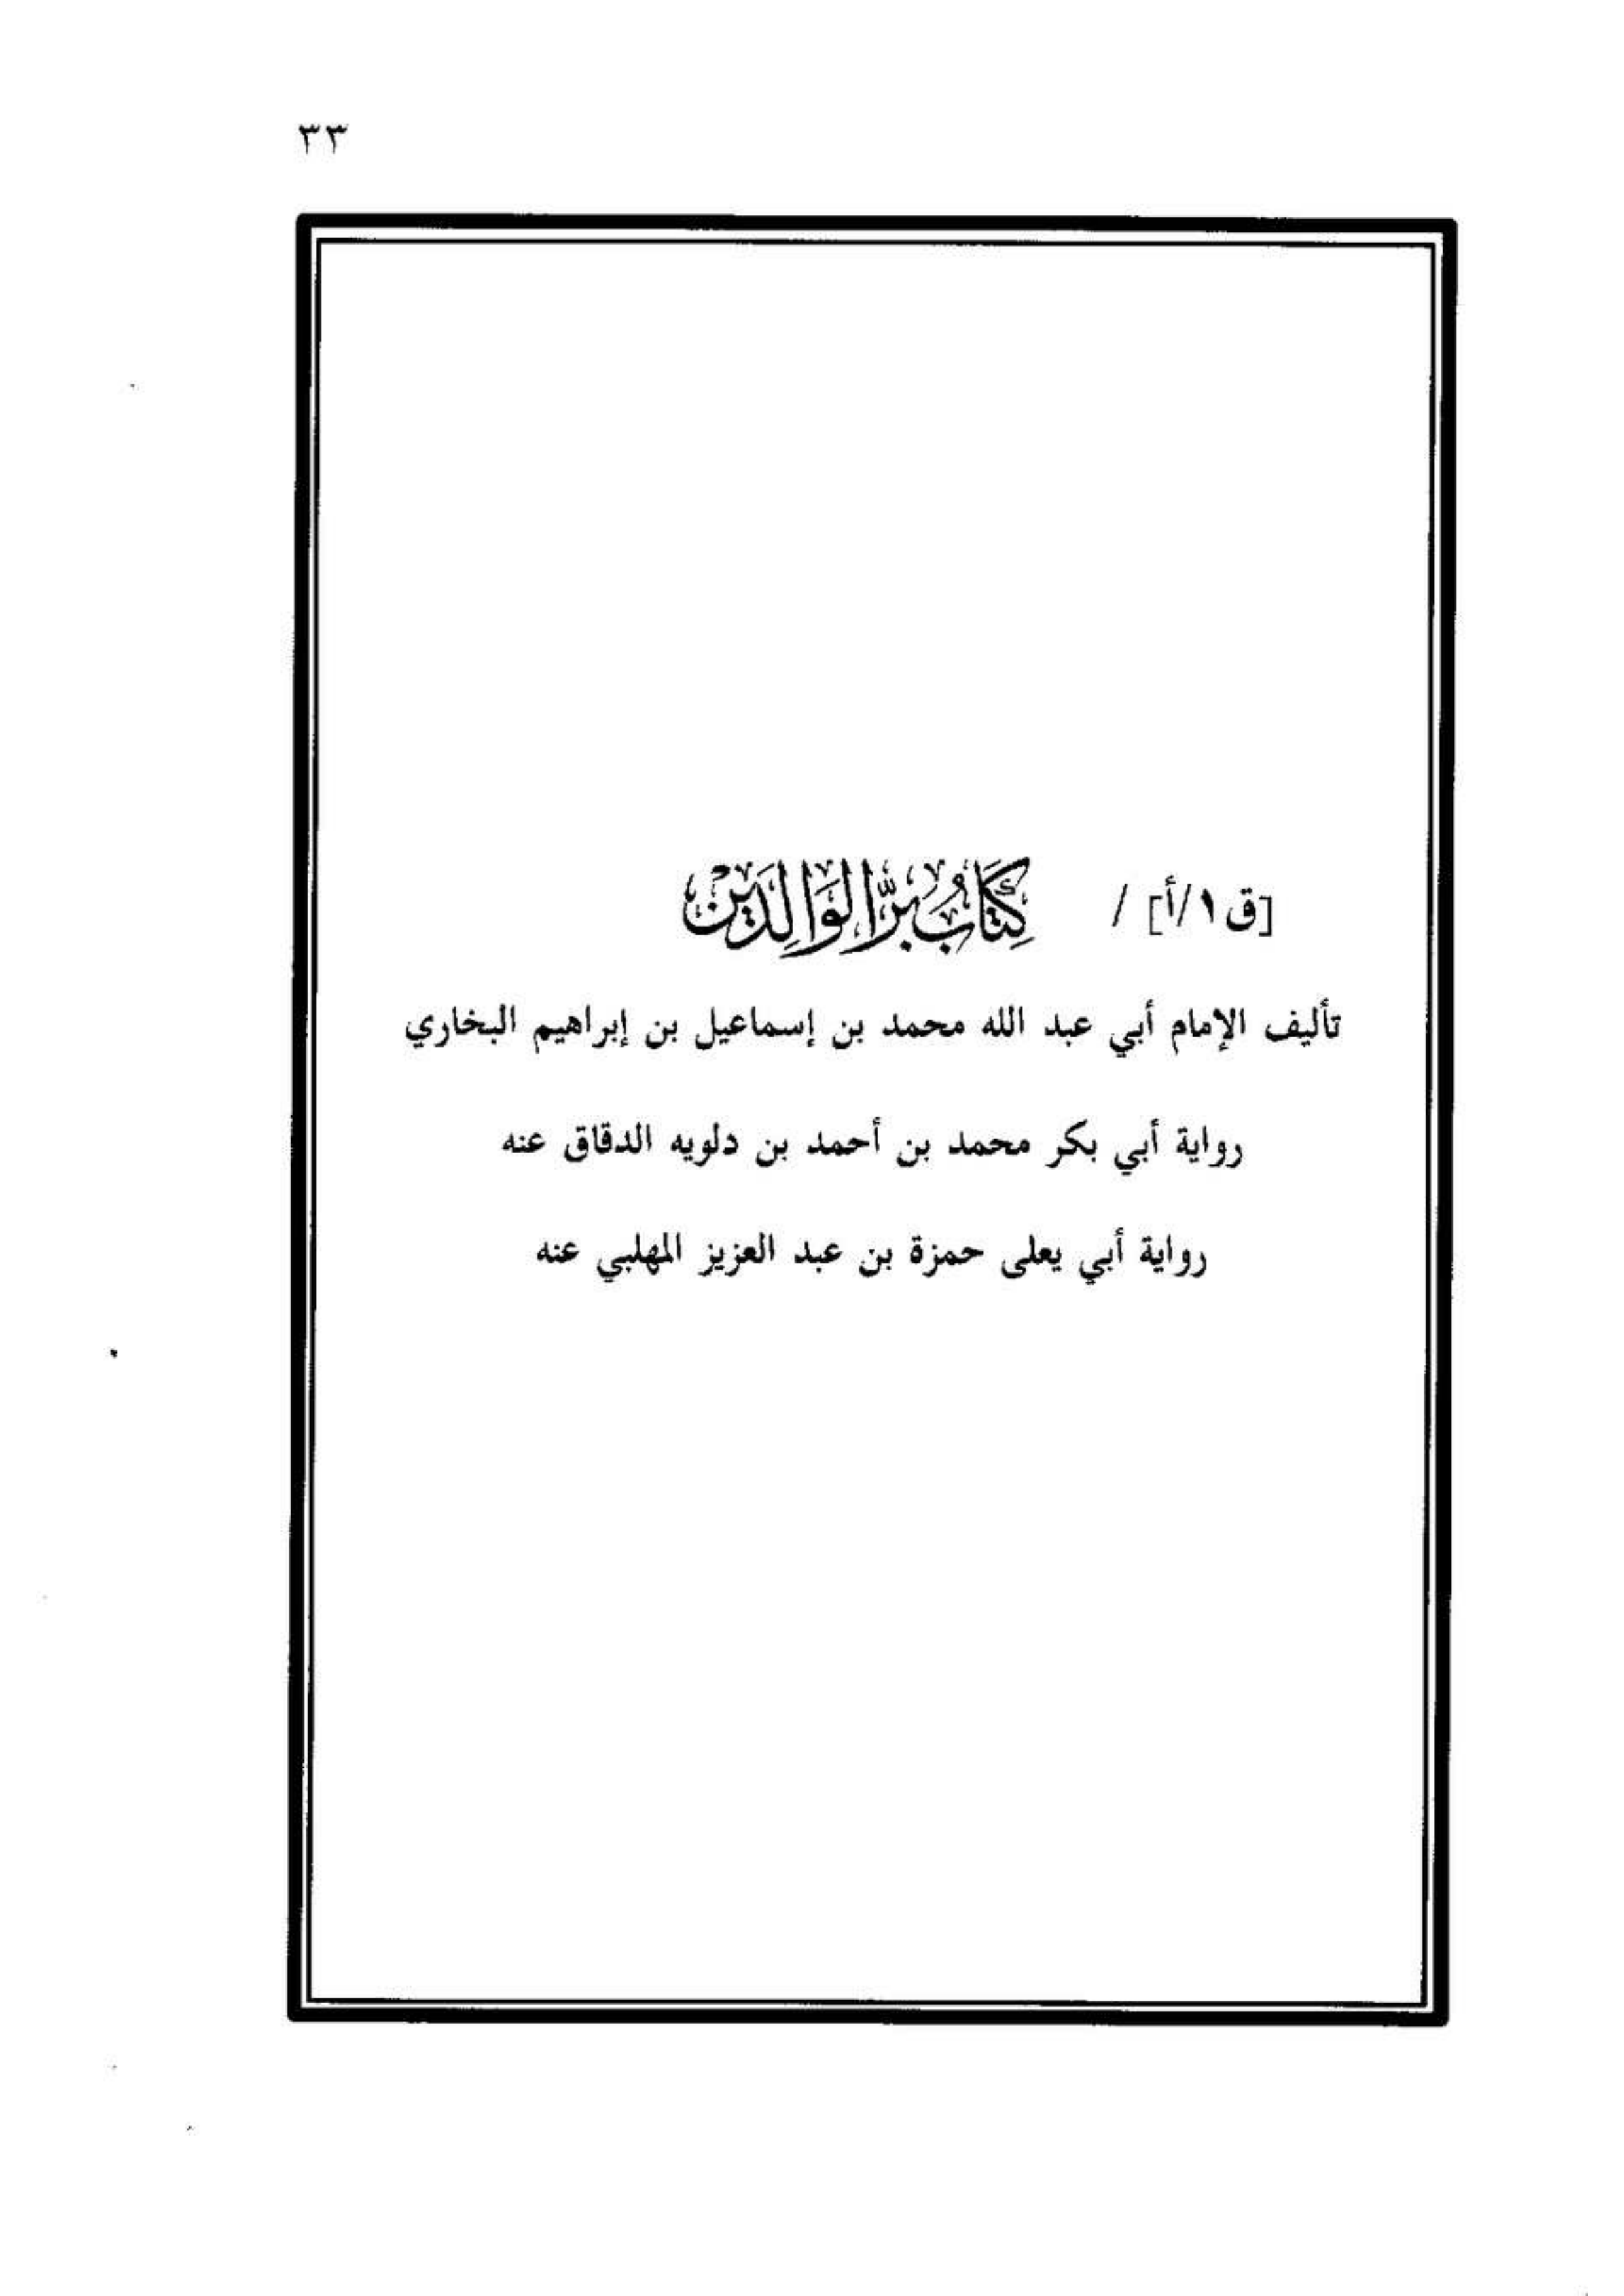 ٣٣
[ق١/أ] / كِتَابُ بِرِّ الوَالِدَيْنِ
تأليف الإمام أبي عبد الله محمد بن إسماعيل بن إبراهيم البخاري
رواية أبي بكر محمد بن أحمد بن دلويه الدقاق عنه
رواية أبي يعلى حمزة بن عبد العزيز المهلبي عنه